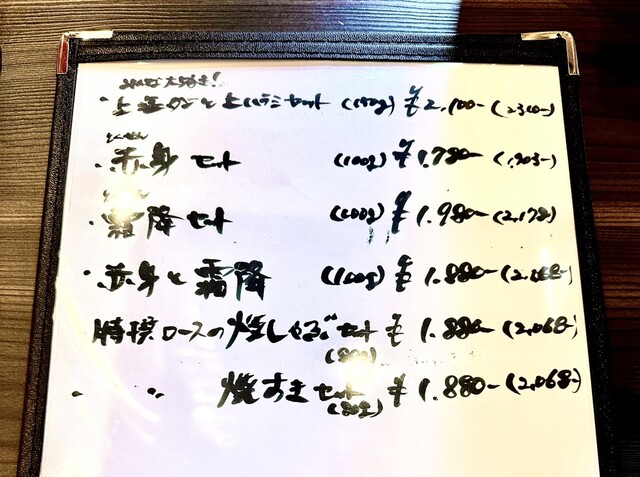 みんな大好き!
・上塩タンと上ハラミセット (150g) ¥2,100- (2,310-)
・赤身セット (100g) ¥1,780- (1,903-)
・霜降セット (100g) ¥1,980- (2,178)
・赤身と霜降 (100g) ¥1,880- (2,068-)
特撰ロースの焼しゃぶセット ¥1,880- (2,068-)
(80g)
・ 〃 焼すきセット ¥1,880- (2,068-)
(80g)